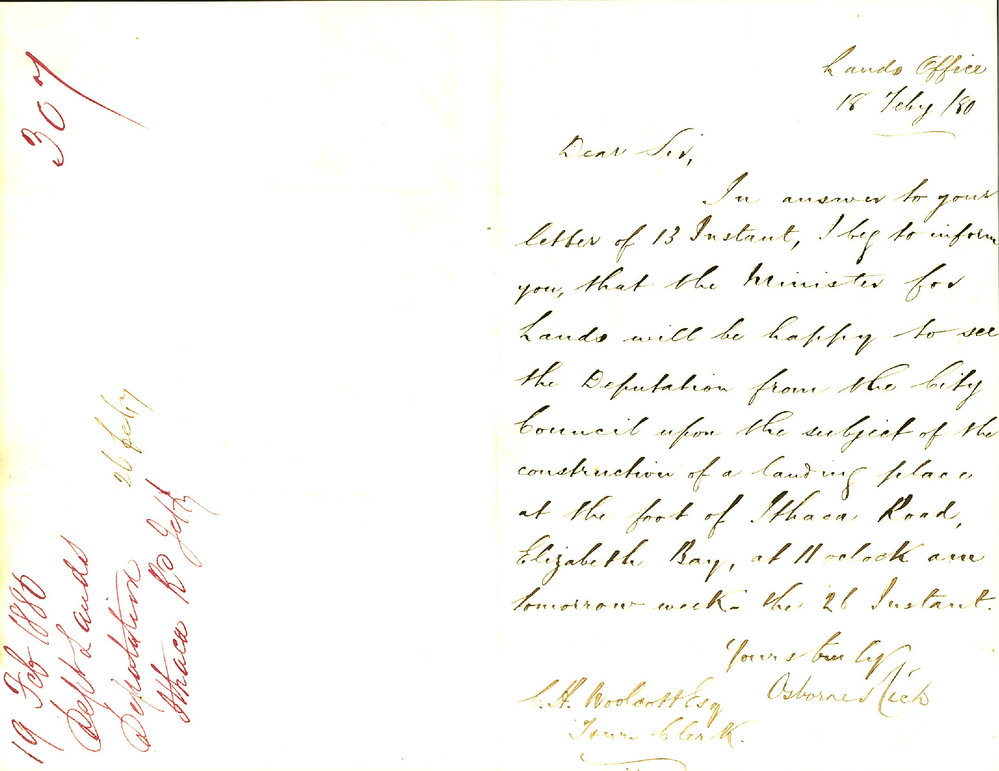 307
19 Feb 1880
Dept Lands
Deputation
Ithaca Rd Jetty
26 Feby
Lands Office
18 Feby /80
Dear Sir,
In answer to your
letter of 13 Instant, I beg to inform
you, that the Minister for
Lands will be happy to see
the Deputation from the City
Council upon the subject of the
construction of a landing place
at the foot of Ithaca Road,
Elizabeth Bay, at 11 oclock am
tomorrow week - the 26 Instant.
Yours truly
Osborne Rich
C. H. Woolcott Esq
Town Clerk.